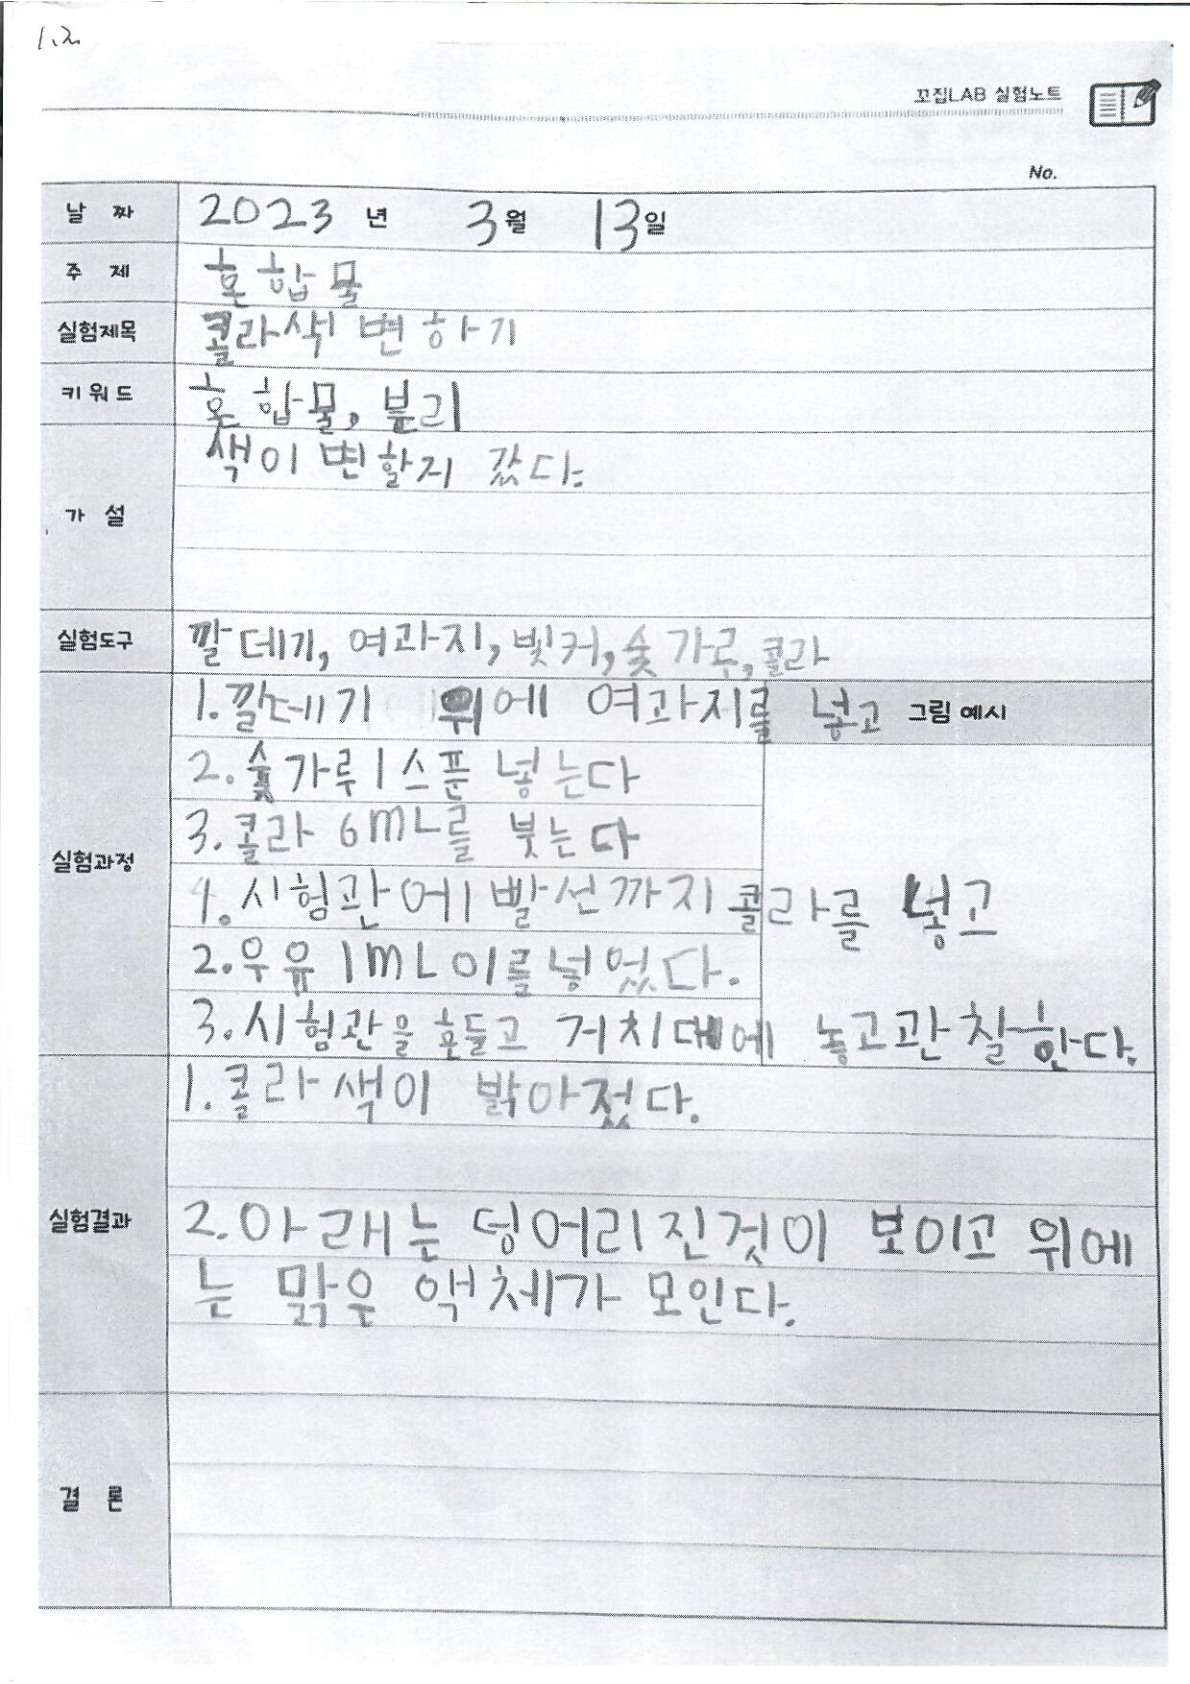 1.2
꼬집LAB 실험노트
No.
날 짜 2023 년 3월 13일
주 제 혼합물
실험제목 콜라색 변하기
키워드 혼합물, 분리
가 설 색이 변할지 갔다.
실험도구 깔데기, 여과지, 빛커, 숯가루, 콜라
실험과정 1. 깔데기 위에 여과지를 넣고 그림 예시
2. 숯가루 1스푼 넣는다
3. 콜라 6mL를 붓는다
4. 시험관에 빨선까지 콜라를 넣고
2. 우유 1mL이를 넣었다.
3. 시험관을 흔들고 거치대에 놓고 관찰한다.
실험결과 1. 콜라색이 밝아졌다.
2. 아래는 덩어리진것이 보이고 위에
는 맑은 액체가 모인다.
결 론